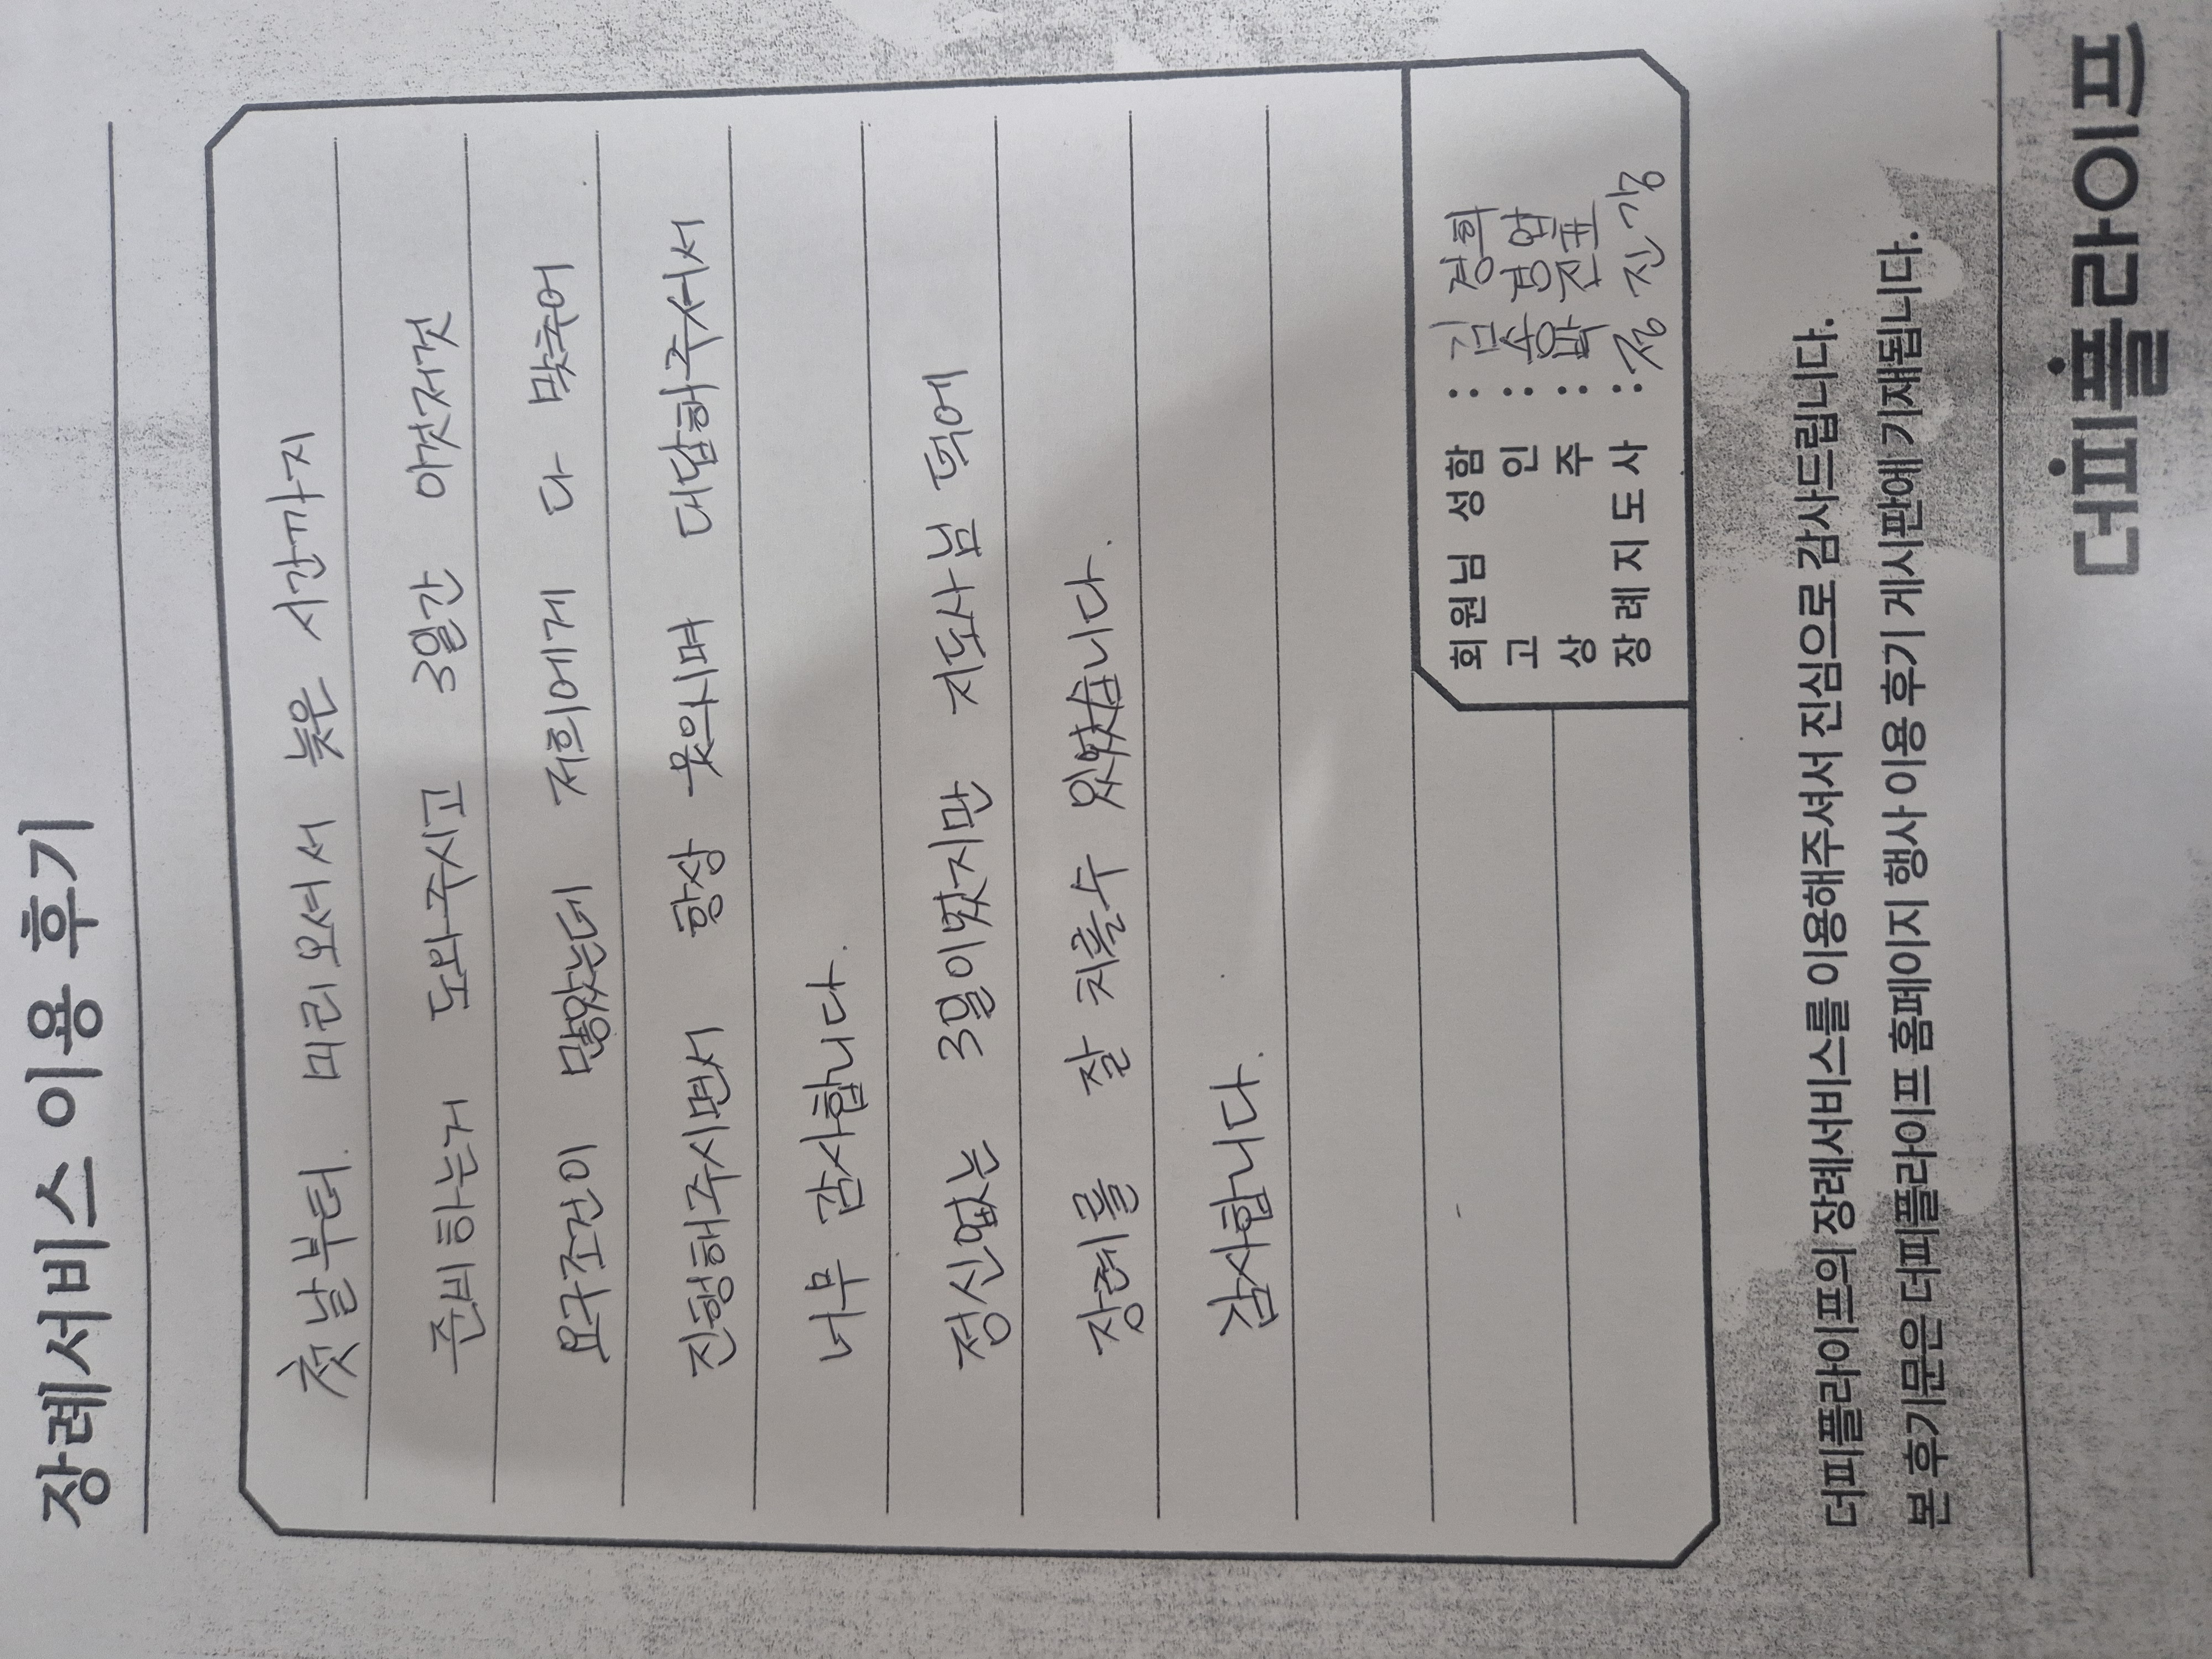 장례서비스 이용 후기
첫날부터 미리오셔서 늦은 시간까지
준비하는거 도와주시고 3일간 이것저것
요구조건이 많았는데 저희에게 다 맞추어
진행해주시면서 항상 웃으시며 대답해주셔서
너무 감사합니다.
정신없는 3일이었지만 지도사님 덕에
장례를 잘 치를수 있었습니다.
감사합니다.
회원님 성함 : 김경희
고 인 : 송경업
상 주 : 박진표
장례지도사 : 정진강
더피플라이프의 장례서비스를 이용해주셔서 진심으로 감사드립니다.
본 후기문은 더피플라이프 홈페이지 행사 이용 후기 게시판에 기재됩니다.
더피플라이프